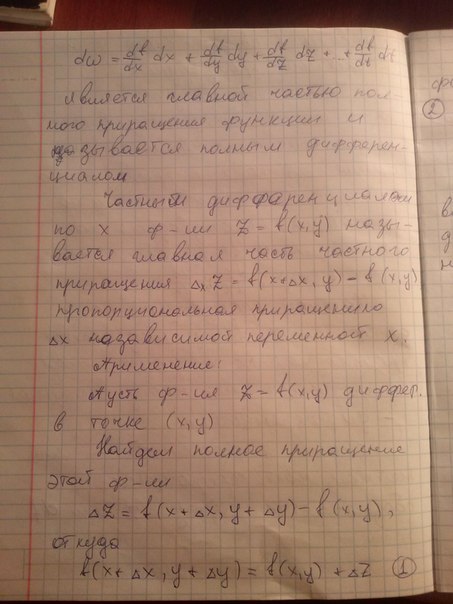 dw = df/dx dx + df/dy dy + df/dz dz + ... + df/dt dt
является главной частью пол
ного приращения функции и
называется полным дифферен-
циалом
Частным дифференциалом
по x ф-ии Z = f(x,y) назы-
вается главная часть частного
приращения Δₓ Z = f(x+Δx, y) - f(x,y)
пропорциональная приращению
Δx независимой переменной x.
Применение:
Пусть ф-ия Z = f(x,y) диффер.
в точке (x,y)
Найдем полное приращение
этой ф-ии
ΔZ = f(x+Δx, y+Δy) - f(x,y),
откуда
f(x+Δx, y+Δy) = f(x,y) + ΔZ ①
②